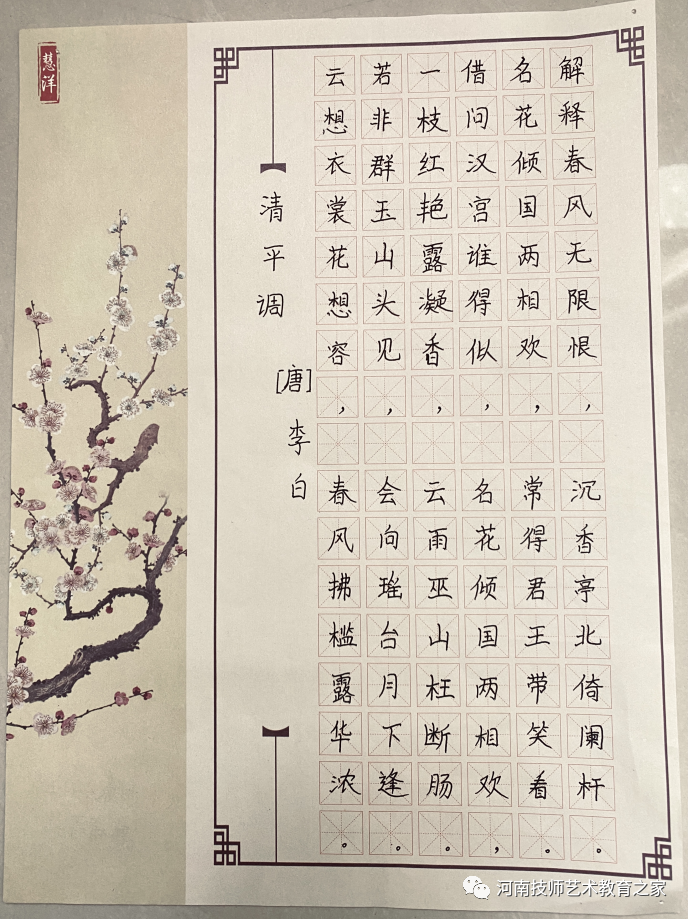 慧洋
清平调
[唐]李白
云想衣裳花想容，春风拂槛露华浓。
若非群玉山头见，会向瑶台月下逢。
一枝红艳露凝香，云雨巫山枉断肠。
借问汉宫谁得似，名花倾国两相欢，
名花倾国两相欢，常得君王带笑看。
解释春风无限恨，沉香亭北倚阑杆。
河南技师艺术教育之家